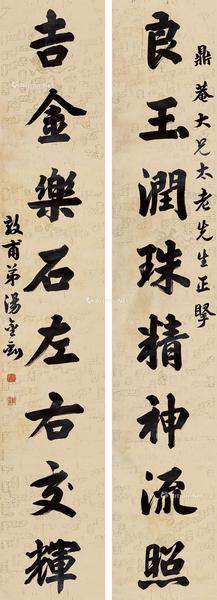 鼎菴大兄大老先生正擘
良玉潤珠精神流照
吉金樂石左右交輝
敦甫弟湯金釗